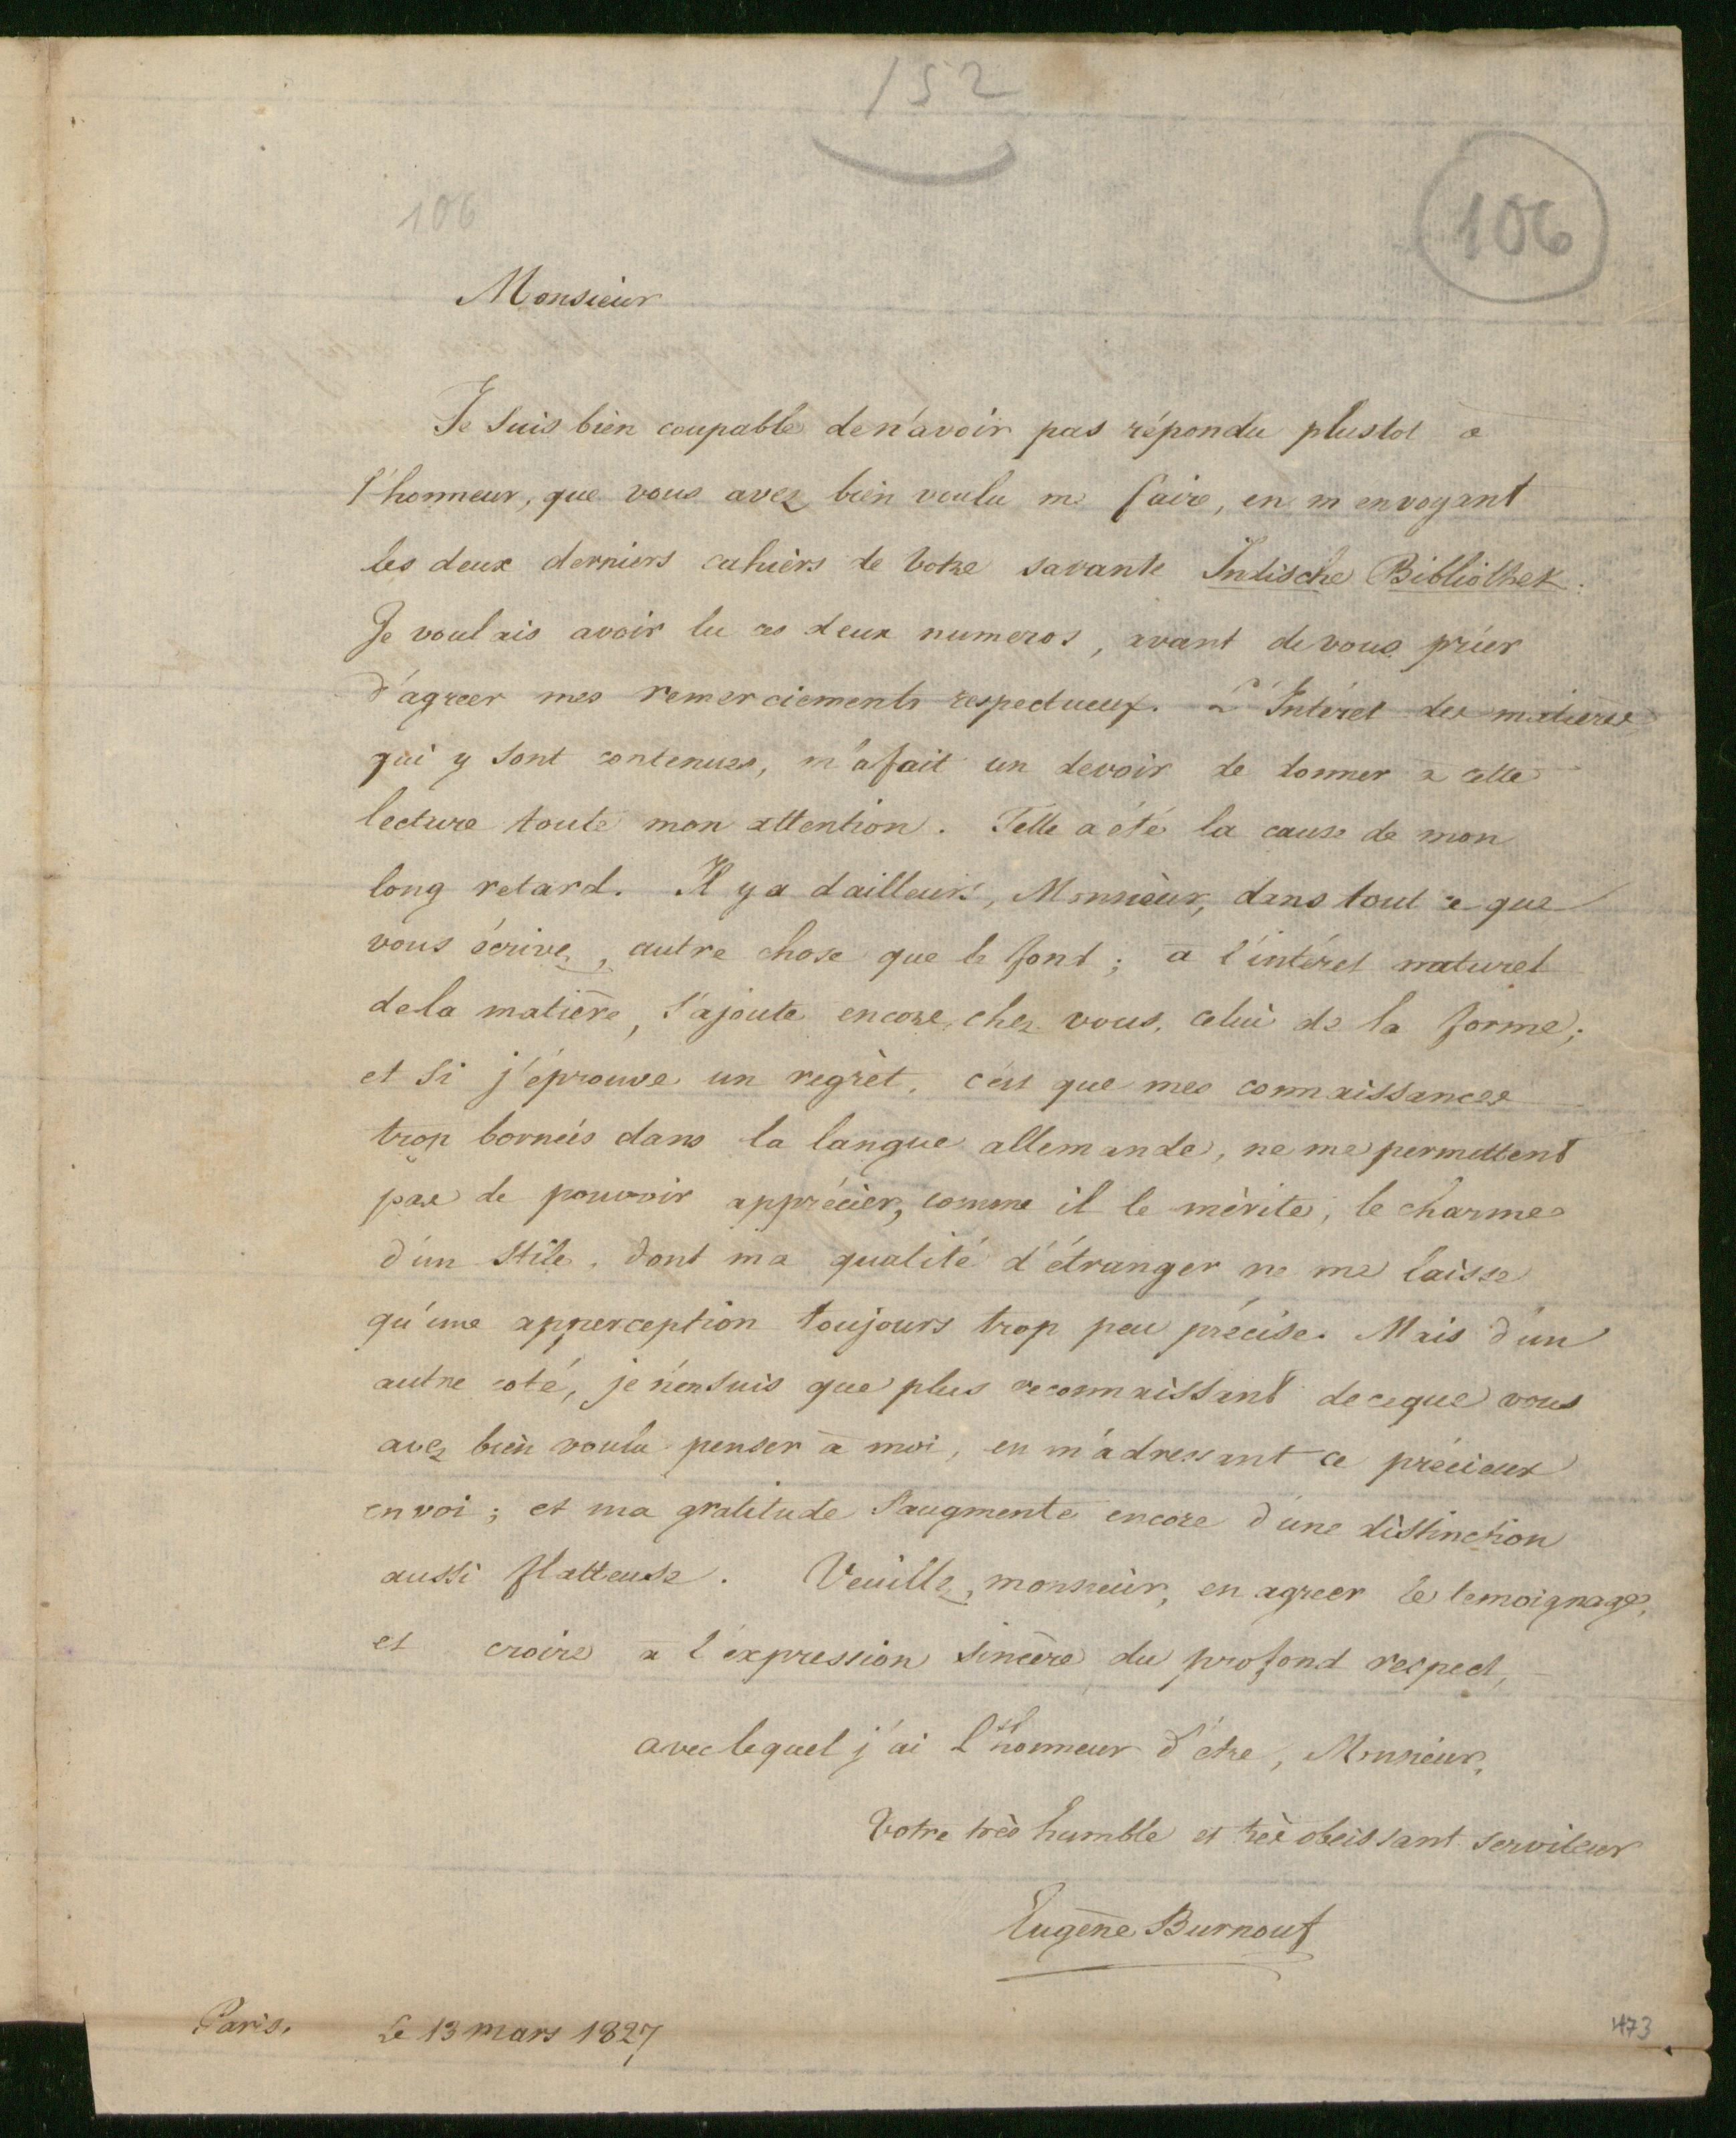 152
106
106
Monsieur
Je suis bien coupable de n'avoir pas répondu plustot a
l'honneur, que vous avez bien voulu me faire, en m'envoyant
les deux derniers cahiers de votre savante Indische Bibliothek.
Je voulais avoir lu ces deux numeros, avant de vous prier
d'agreer mes remerciements respectueux. L'Intéret des matieres
qui y sont contenues, m'a fait un devoir de donner a cette
lecture toute mon attention. Telle a été la cause de mon
long retard. Il y a dailleurs, Monsieur, dans tout ce que
vous écrivez, autre chose que le fond; a l'intéret naturel
de la matière, s'ajoute encore, chez vous, celui de la forme;
et si j'éprouve un regrèt, c'est que mes connaissances
trop bornées dans la langue allemande, ne me permettent
pas de pouvoir apprécier, comme il le mérite, le charme
d'un stile, dont ma qualité d'étranger ne me laisse
qu'une apperception toujours trop peu précise. Mais d'un
autre coté, je n'en suis que plus reconnaissant de ce que vous
avez bien voulu penser à moi, en m'adressant ce précieux
envoi; et ma gratitude s'augmente encore d'une distinction
aussi flatteuse. Veuillez, monsieur, en agreer le temoignage,
et croire a l'expression sincère du profond respect,
avec lequel j'ai l'honneur d'etre, Monsieur,
Votre très humble et très obeissant serviteur
Eugène Burnouf
Paris. Le 13 mars 1827
473